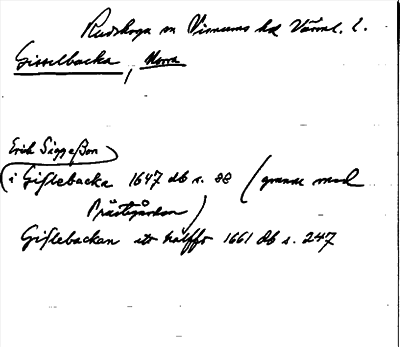 Rudskoga sn Visnums hd Värml. l.
Gisselbacka, Norra
Erik Siggeßon
(i Gißlebacka 1647 db s. 88 (granne med
Prästgården)
Gißlebackan itt hälfft 1661 db s. 247